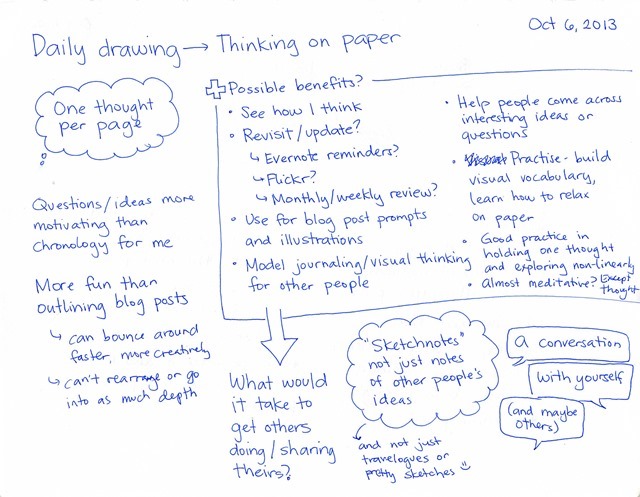 Oct 6, 2013
Daily drawing → Thinking on paper
One thought
per page
Questions/ideas more
motivating than
chronology for me
More fun than
outlining blog posts
↳ can bounce around
faster, more creatively
↳ can't rearrange or go
into as much depth
Possible benefits?
• See how I think
• Revisit/update?
↳ Evernote reminders?
↳ Flickr?
↳ Monthly/weekly review?
• Use for blog post prompts
and illustrations
• Model journaling/visual thinking
for other people
• Help people come across
interesting ideas or
questions
• Practise - build
visual vocabulary,
learn how to relax
on paper
• Good practice in
holding one thought
and exploring non-linearly
• Almost meditative? Except
thought
What would
it take to
get others
doing/sharing
theirs?
"Sketchnotes"
not just notes
of other people's
ideas
and not just
travelogues or
pretty sketches
A conversation
with yourself
(and maybe
others)